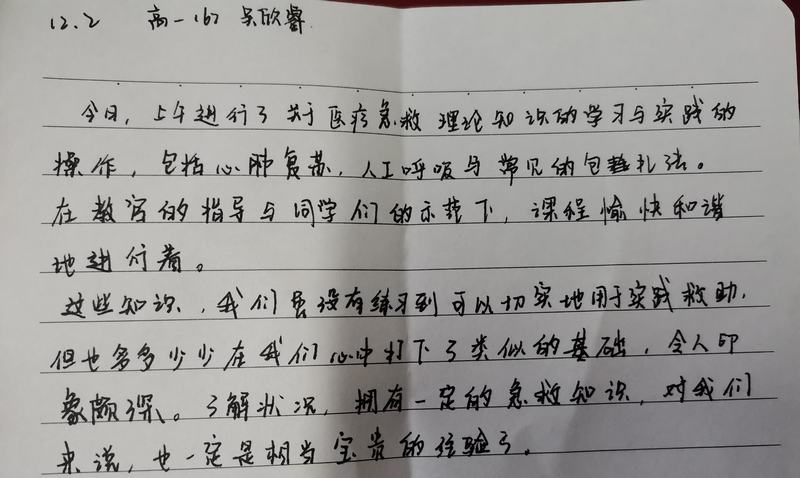 12.2 高一(6) 吴欣馨
今日，上午进行了关于医疗急救理论知识的学习与实践的
操作，包括心肺复苏，人工呼吸与常见的包扎法。
在教官的指导与同学们的示范下，课程愉快和谐
地进行着。
这些知识，我们虽没有练习到可以切实地用于实践救助，
但也多多少少在我们心中打下了类似的基础，令人印
象颇深。了解状况，拥有一定的急救知识，对我们
来说，也一定是相当宝贵的经验了。